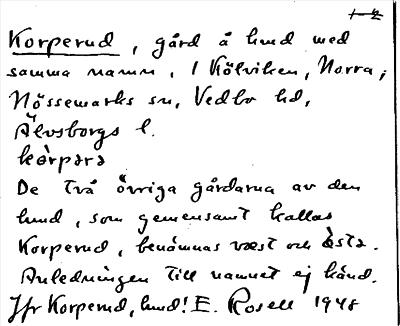 1-2
Korperud, gård å hmd med
samma namn, I Kölviken, Norra,
Nössemarks sn, Vedbo hd,
Älvsborgs l.
kòrpərə
De två övriga gårdarna av den
hmd, som gemensamt kallas
Korperud, benämnas væst och ästa.
Anledningen till namnet ej känd.
Jfr Korperud, hmd! E. Rosell 1948